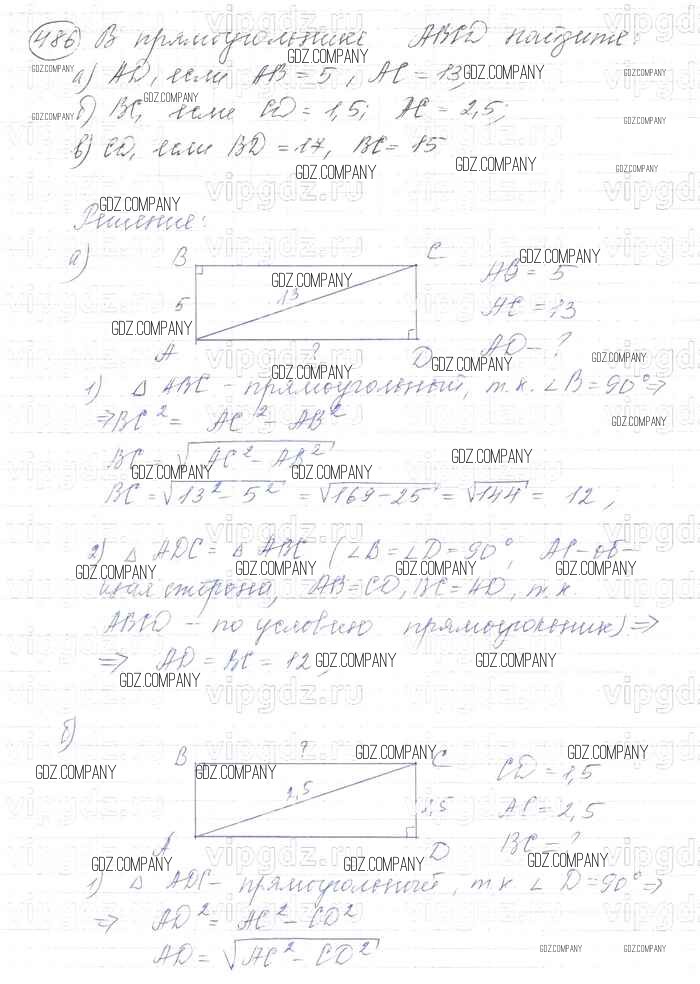 486 В прямоугольнике ABCD найдите:
а) AD, если AB = 5, AC = 13;
б) BC, если CD = 1,5; AC = 2,5;
в) CD, если BD = 17, BC = 15
Решение:
а)
B C
5 13
A ? D
AB = 5
AC = 13
AD - ?
1) △ ABC - прямоугольный, т.к. ∠B = 90° ⇒
⇒ BC² = AC² - AB²
BC = √AC² - AB²
BC = √13² - 5² = √169 - 25 = √144 = 12,
2) △ ADC = △ ABC (∠B = ∠D = 90°, AC - об-
щая сторона, AB = CD, BC = AD, т.к
ABCD - по условию прямоугольник) ⇒
⇒ AD = BC = 12,
б)
B ? C
2,5 1,5
A D
CD = 1,5
AC = 2,5
BC = ?
1) △ ADC - прямоугольный, т.к ∠D = 90° ⇒
⇒ AD² = AC² - CD²
AD = √AC² - CD²
GDZ.COMPANY
vipgdz.ru